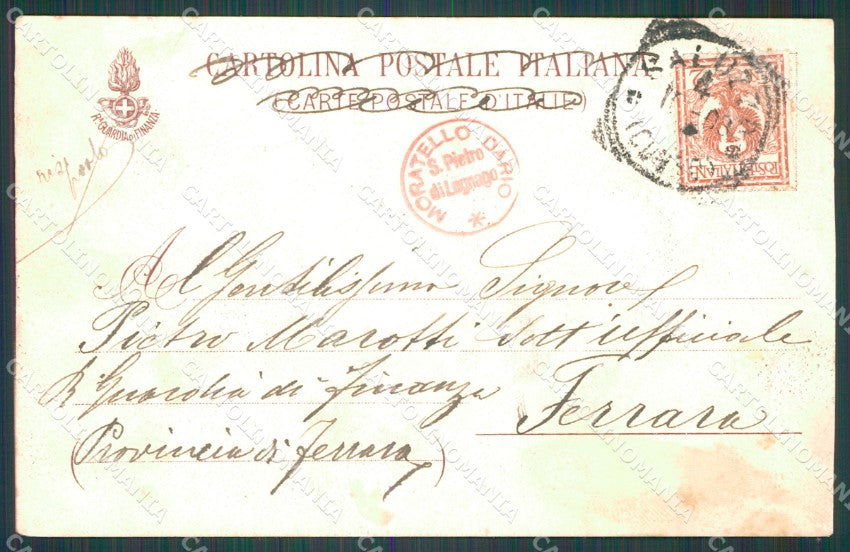 CARTOLINA POSTALE ITALIANA
(CARTE POSTALE D'ITALIE)
Rª GUARDIA DI FINANZA
MORATELLO DARIO
S. Pietro
di Legnago
POSTE ITALIANE
Al Gentilissimo Signore
Pietro Marotti Sott'ufficiale
R Guardia di Finanza
Ferrara
(Provincia di Ferrara)
CARTOLINOMANIA